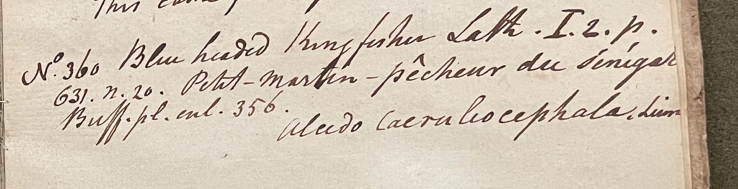 This
No. 360 Blue headed Kingfisher Lath. I. 2. p.
631. n. 20. Petit-martin-pêcheur du Sénégal
Buff. pl. enl. 356.
Alcedo Caeruliocephala. Linn